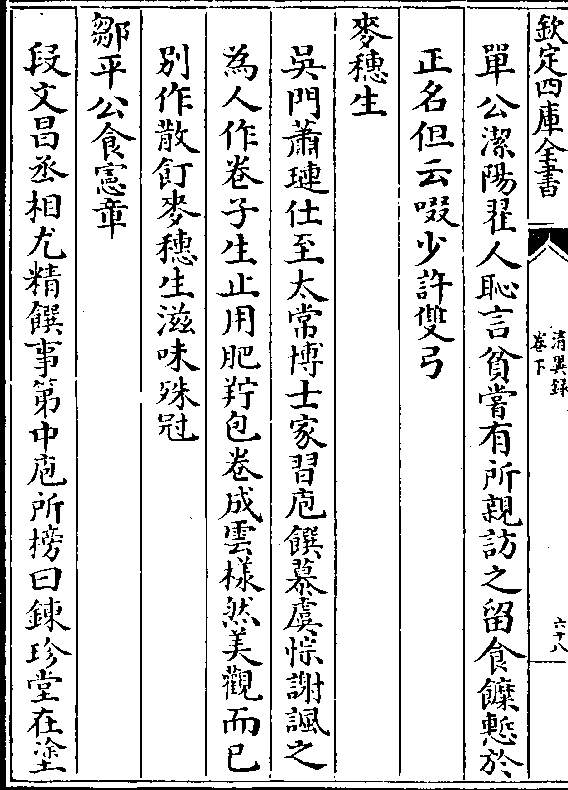 欽定四庫全書
清異録
卷下
六十八
單公潔陽翟人恥言貧嘗有所親訪之留食糜慙於
正名但云啜少許雙弓
麥穗生
吳門蕭璉仕至太常博士家習庖饌慕虞悰謝諷之
為人作卷子生止用肥羜包卷成雲樣然美觀而已
別作散飣麥穗生滋味殊冠
鄒平公食憲章
段文昌丞相尤精饌事第中庖所榜曰錬珍堂在塗